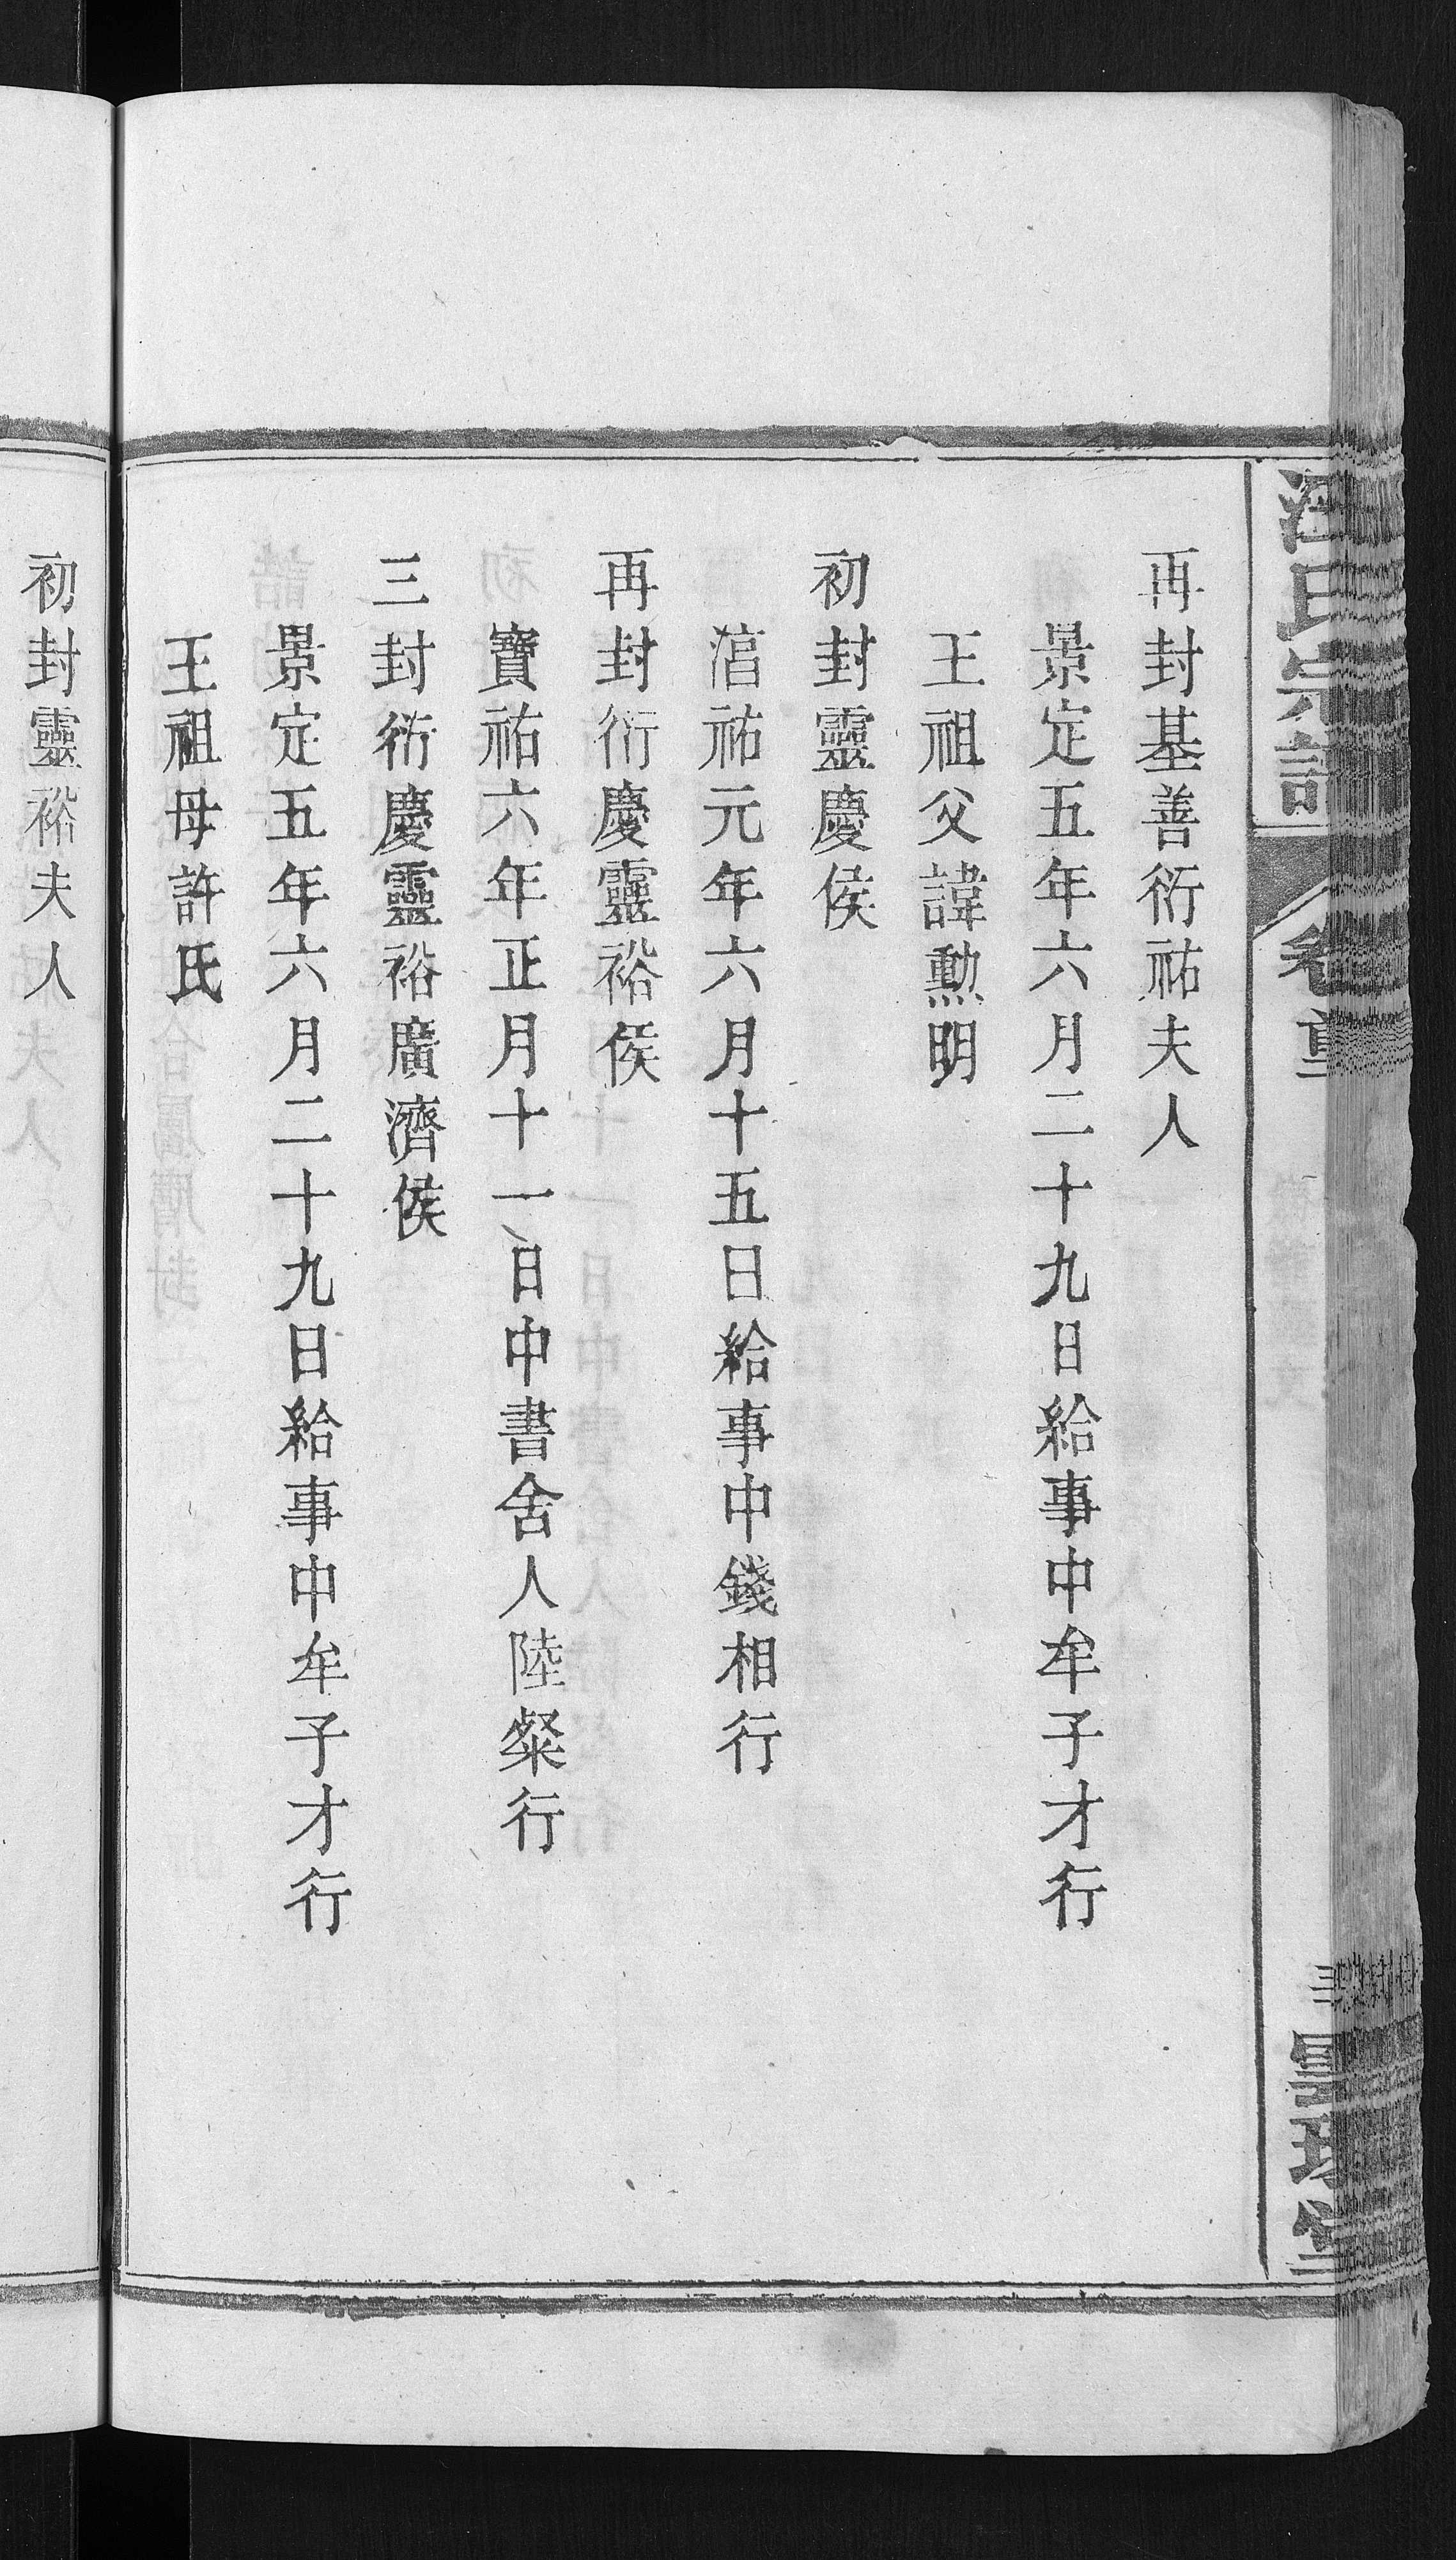 汪氏宗譜
卷首
三
再封基善衍祐夫人
景定五年六月二十九日給事中牟子才行
王祖父諱勳明
初封靈慶侯
湻祐元年六月十五日給事中錢相行
再封衍慶靈裕侯
寶祐六年正月十一日中書舍人陸粲行
三封衍慶靈裕廣濟侯
景定五年六月二十九日給事中牟子才行
王祖母許氏
初封靈裕夫人